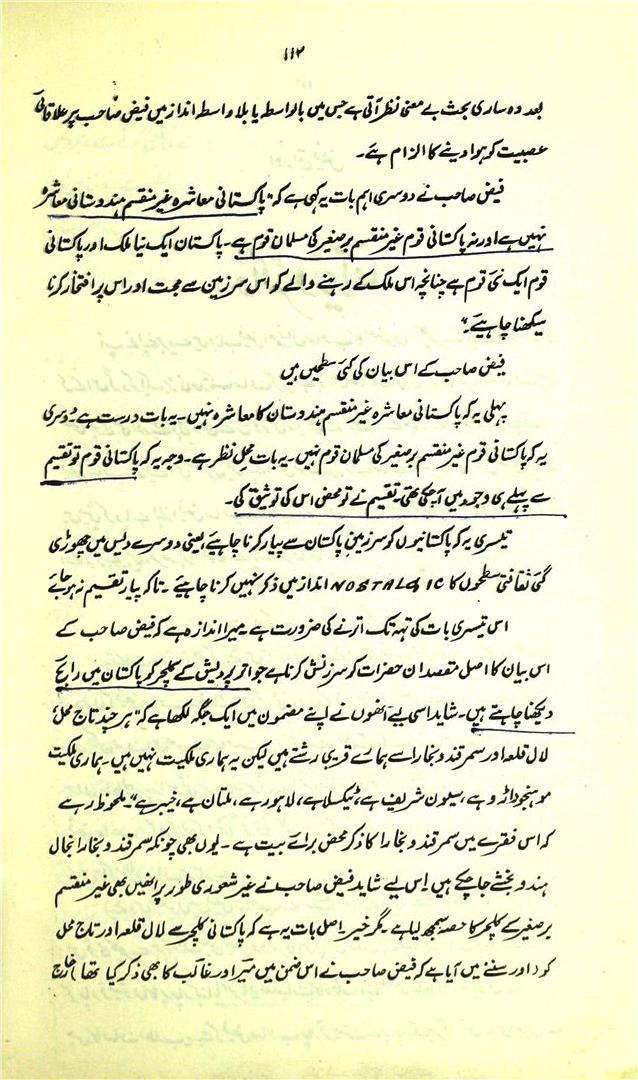 ۱۱۲
بعد وہ ساری بحث بے معنی نظر آتی ہے جس میں بالواسطہ یا بلا واسطہ انداز میں فیض صاحب پر علاقائی
عصبیت کو ہوا دینے کا الزام ہے۔
فیض صاحب نے دوسری اہم بات یہ کہی ہے کہ "پاکستانی معاشرہ غیر منقسم ہندوستانی معاشرہ
نہیں ہے اور نہ پاکستانی قوم غیر منقسم برصغیر کی مسلمان قوم ہے۔ پاکستان ایک نیا ملک اور پاکستانی
قوم ایک نئی قوم ہے چنانچہ اس ملک کے رہنے والے کو اس سرزمین سے محبت اور اس پر افتخار کرنا
سیکھنا چاہیے۔"
فیض صاحب کے اس بیان کی کئی سطحیں ہیں
پہلی یہ کہ پاکستانی معاشرہ غیر منقسم ہندوستان کا معاشرہ نہیں۔ یہ بات درست ہے۔ دوسری
یہ کہ پاکستانی قوم غیر منقسم برصغیر کی مسلمان قوم نہیں۔ یہ بات محلِ نظر ہے۔ وجہ یہ کہ پاکستانی قوم تو تقسیم
سے پہلے ہی وجود میں آ چکی تھی۔ تقسیم نے تو محض اس کی توثیق کی۔
تیسری یہ کہ پاکستانیوں کو سرزمینِ پاکستان سے پیار کرنا چاہیے یعنی دوسرے دیس میں چھوڑی
گئی ثقافتی سطحوں کا NOSTALGIC انداز میں ذکر نہیں کرنا چاہیے۔ تاکہ پیار تقسیم نہ ہو جائے
اس تیسری بات کی تہہ تک اترنے کی ضرورت ہے۔ میرا اندازہ ہے کہ فیض صاحب کے
اس بیان کا اصل مقصد ان حضرات کو سرزنش کرنا ہے جو اتر پردیش کے کلچر کو پاکستان میں رائج
دیکھنا چاہتے ہیں۔ شاید اسی لیے انھوں نے اپنے مضمون میں ایک جگہ لکھا ہے کہ "ہر چند تاج محل،
لال قلعہ اور سمرقند و بخارا سے ہمارے قریبی رشتے ہیں لیکن یہ ہماری ملکیت نہیں ہیں۔ ہماری ملکیت
موہنجوداڑو ہے، سیہون شریف ہے، ٹیکسلا ہے، لاہور ہے، ملتان ہے، خیبر ہے"۔ ملحوظ رہے
کہ اس فقرے میں سمرقند و بخارا کا ذکر محض برائے بیت ہے۔ یوں بھی چونکہ سمرقند و بخارا بخالِ
ہندو بخشے جا چکے ہیں اس لیے شاید فیض صاحب نے غیر شعوری طور پر انھیں بھی غیر منقسم
برصغیر کے کلچر کا حصہ سمجھ لیا ہے۔ مگر خیر۔ اصل بات یہ ہے کہ پاکستانی کلچر سے لال قلعہ اور تاج محل
کو (اور سننے میں آیا ہے کہ فیض صاحب نے اس ضمن میں میر اور غالب کا بھی ذکر کیا تھا) خارج